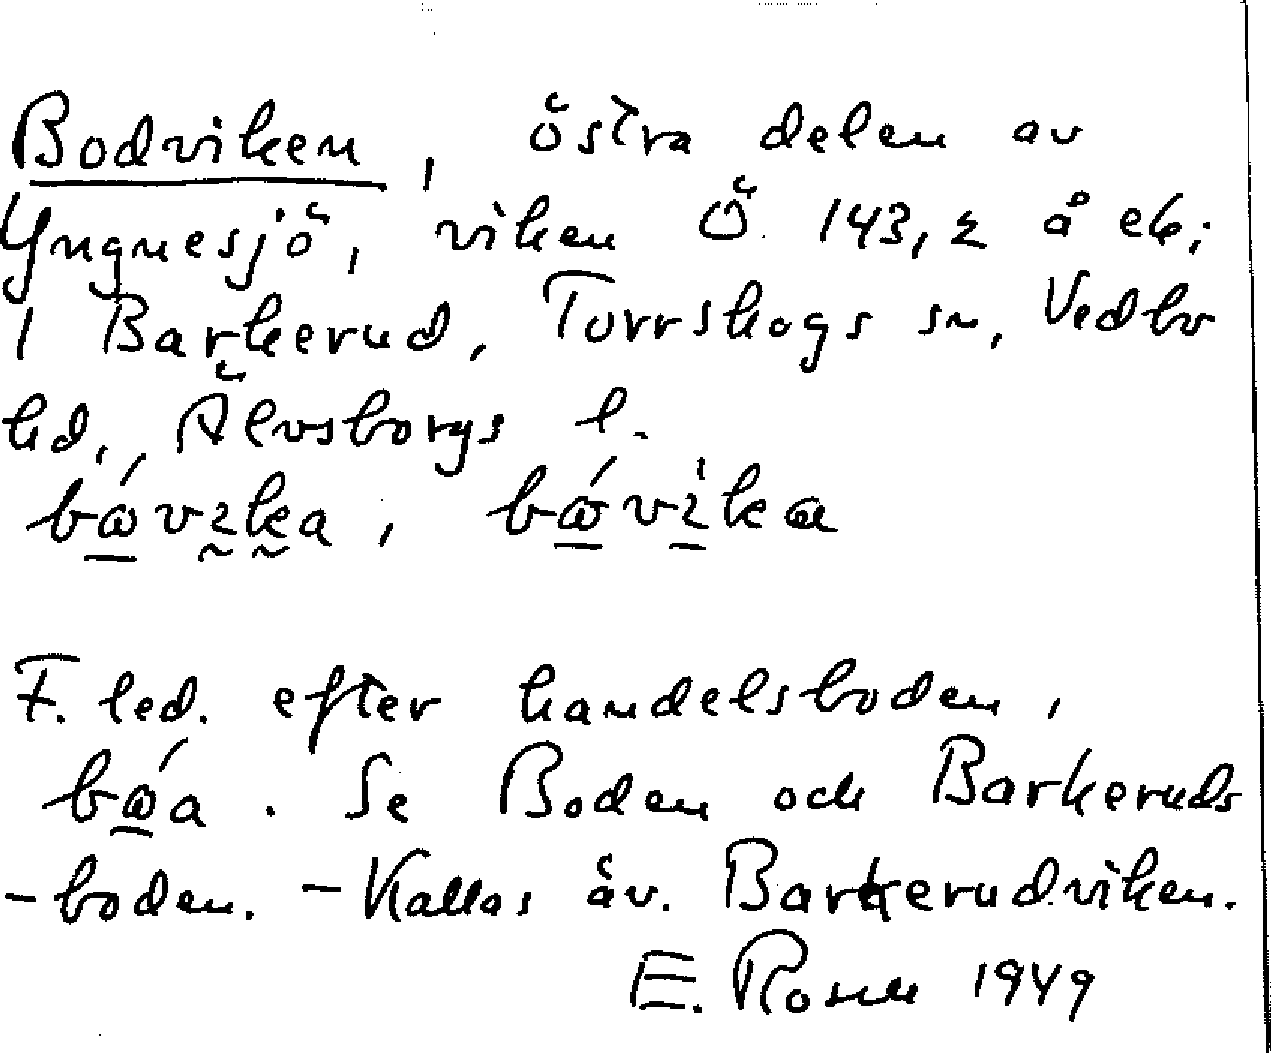 Bodviken, östra delen av
Yngnesjö, viken Ö. 143,2 å eb;
i Barkerud, Torrskogs sn, Vedbo
hd, Älvsborgs l.
F. led. efter handelsboden,
Se Boden och Barkeruds
-boden. - Kallas äv. Barkerudviken.
E. Rosell 1949